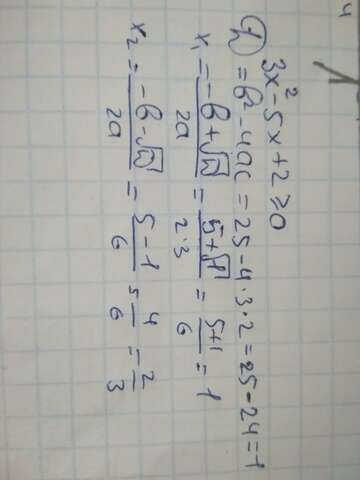 3x² - 5x + 2 ≥ 0
D = b² - 4ac = 25 - 4·3·2 = 25 - 24 = 1
x₁ = (-b + √D)/2a = (5 + √1)/2·3 = (5+1)/6 = 1
x₂ = (-b - √D)/2a = (5 - 1)/6 = 4/6 = 2/3